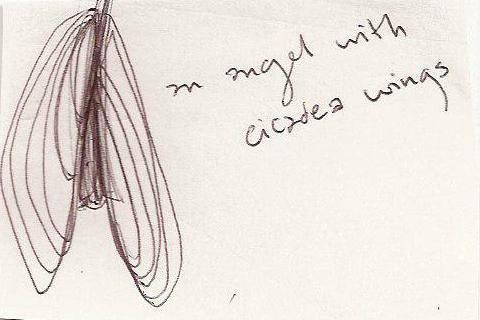 an angel with
cicadea wings